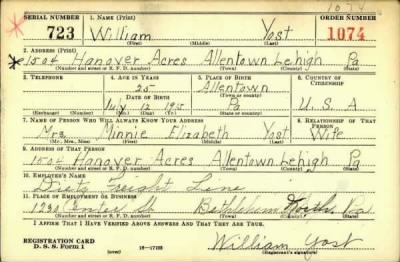 1074
SERIAL NUMBER 1. NAME (Print) ORDER NUMBER
723 William Yost 1074
(First) (Middle) (Last)
2. ADDRESS (Print)
1504 Hanover Acres Allentown Lehigh Pa
(Number and street or R. F. D. number) (Town) (County) (State)
3. TELEPHONE 4. AGE IN YEARS 5. PLACE OF BIRTH 6. COUNTRY OF CITIZENSHIP
25 Allentown
DATE OF BIRTH (Town or county)
July 12 1915 Pa U. S. A
(Exchange) (Number) (Mo.) (Day) (Yr.) (State or country)
7. NAME OF PERSON WHO WILL ALWAYS KNOW YOUR ADDRESS 8. RELATIONSHIP OF THAT PERSON
Mrs. Minnie Elizabeth Yost Wife
(Mr., Mrs., Miss) (First) (Middle) (Last)
9. ADDRESS OF THAT PERSON
1504 Hanover Acres Allentown Lehigh Pa
(Number and street or R. F. D. number) (Town) (County) (State)
10. EMPLOYER'S NAME
Freight Line
11. PLACE OF EMPLOYMENT OR BUSINESS
1230 Center St Bethlehem North. Pa
(Number and street or R. F. D. number) (Town) (County) (State)
I AFFIRM THAT I HAVE VERIFIED ABOVE ANSWERS AND THAT THEY ARE TRUE.
REGISTRATION CARD
D. S. S. Form 1 (over) 16—17105 William Yost
(Registrant's signature)